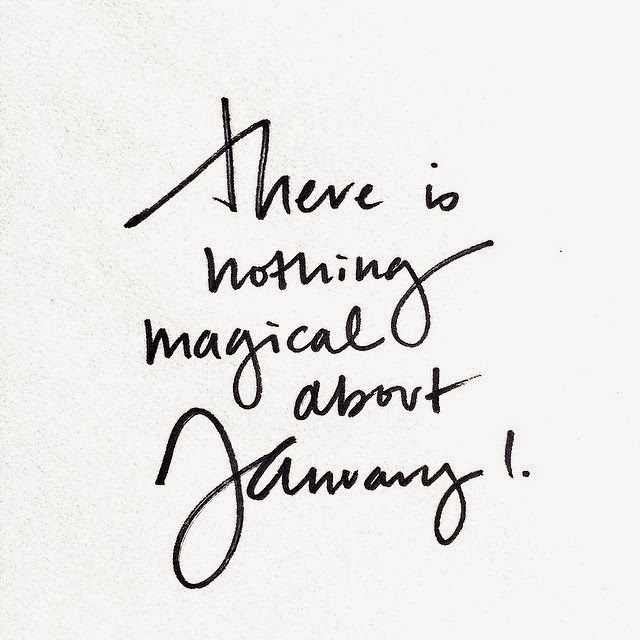 there is
nothing
magical
about
January 1.